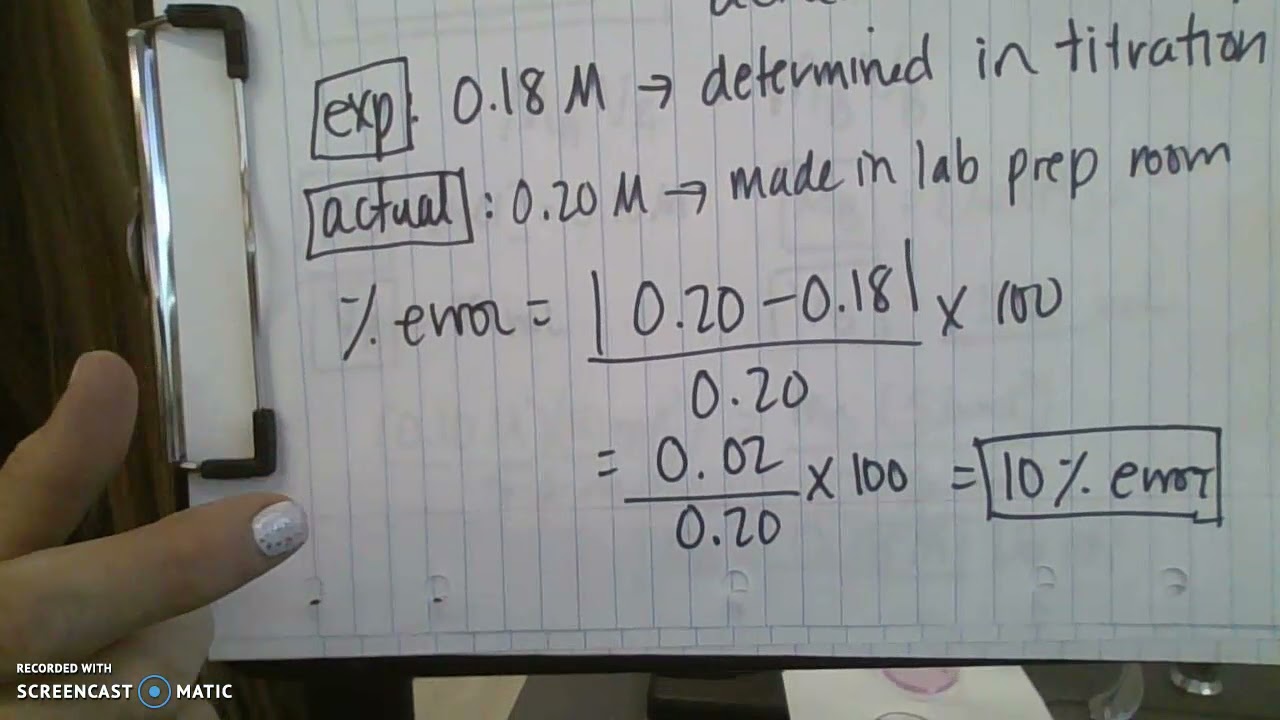 exp: 0.18 M → determined in titration
actual: 0.20 M → made in lab prep room
% error = |0.20 - 0.18| x 100
0.20
= 0.02 x 100 = 10% error
0.20
RECORDED WITH
SCREENCAST MATIC